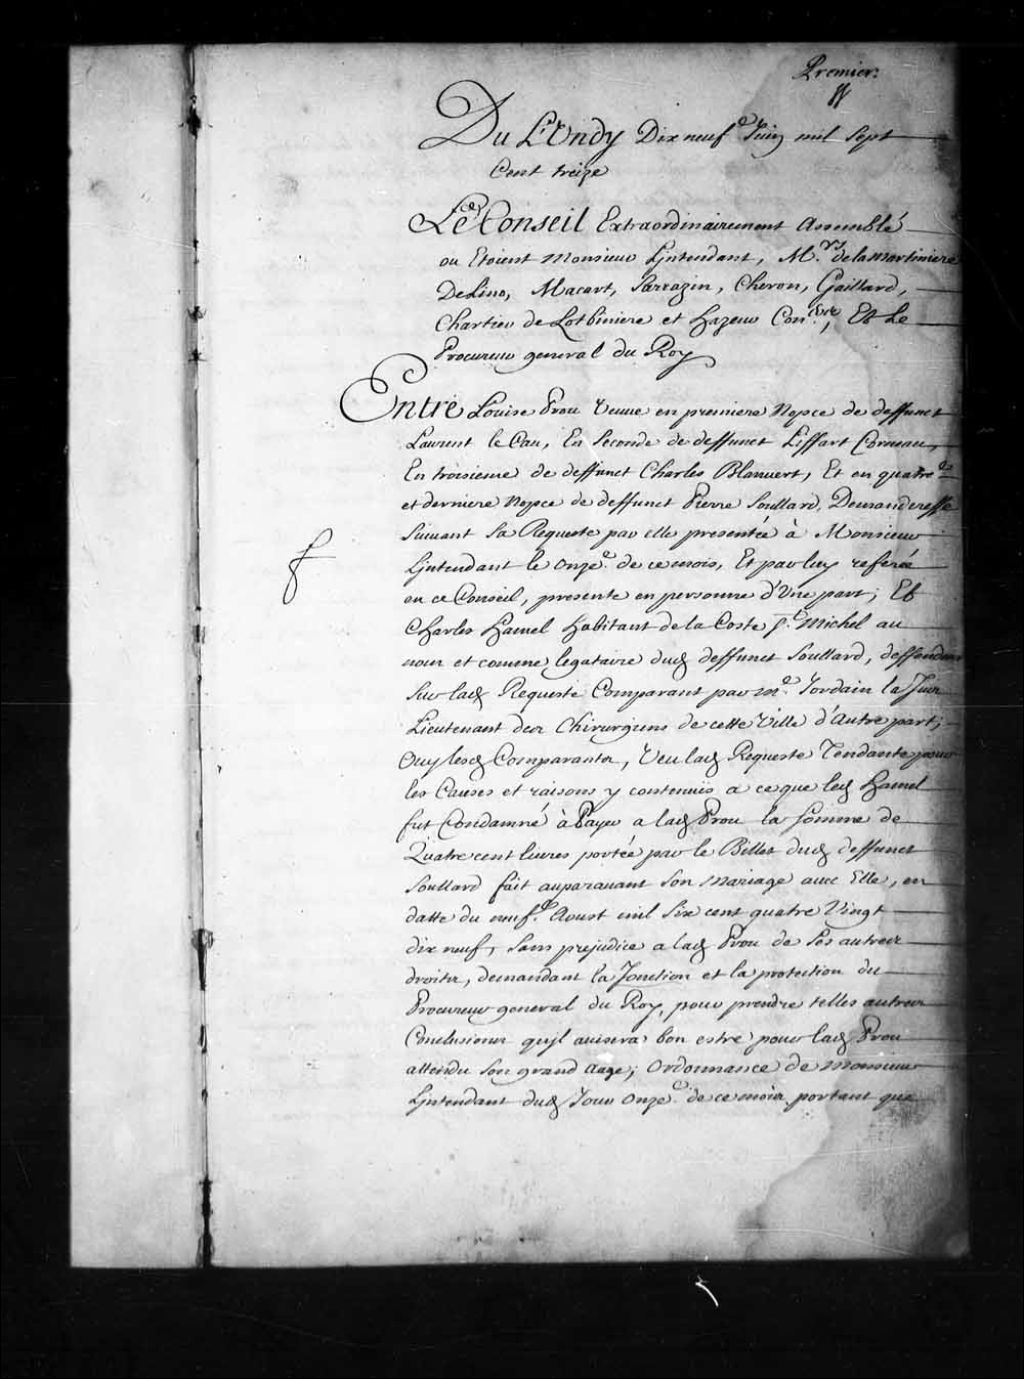 Premier
Du L'Undy Dix neuf.e Juin mil sept
Cent treize
Led. Conseil Extraordinairement Assemblé
ou Etoient Monsieur L'jntendant, M.rs delamartiniere
DeLino, Macart, Sarrazin, Cheron, Gaillard,
Chartier de Lotbiniere et hazeur Con.ers, Et Le
Procureur general du Roy
Entre Louise Prou Veuue en premiere Nopce de deffunct
Laurent le Cau, En Seconde de deffunct Liffart Corneau,
En troisieme de deffunct Charles Blanuert, Et en quatre.e
et derniere Nopce de deffunct Pierre Soullard, Demanderesse
Suiuant Sa Requeste par elle presentée à Monsieur
L'jntendant le onze.e de ce mois, Et par luy referée
en ce Conseil, presente en personne d'Vne part; Et
Charles Hamel habitant de la Coste S.t Michel au
nom et comme legataire dud. deffunct Soullard, deffendeur
Sur lad. Requeste Comparant par m.e Jordain la Juie
Lieutenant des Chirurgiens de cette Ville d'Autre part;
Ouy lesd. Comparants, Veu lad. Requeste Tendante pour
les Causes et raisons y contenuës a ce que led. Hamel
fut Condamné à Payer a lad. Prou la somme de
Quatre cent liures portée par le Billet dud. deffunct
Soullard fait auparauant son Mariage auec Elle, en
datte du neuf.e Aoust mil six cent quatre Vingt
dix neuf, Sans prejudice a lad. Prou de ses autres
droits, demandant la Jonction et la protection du
Procureur general du Roy, pour prendre telles autres
Conclusions qu'jl auisera bon estre pour lad. Prou
attendu Son grand Aage; Ordonnance de Monsieur
L'jntendant dud. Jour onze.e de ce mois portant que